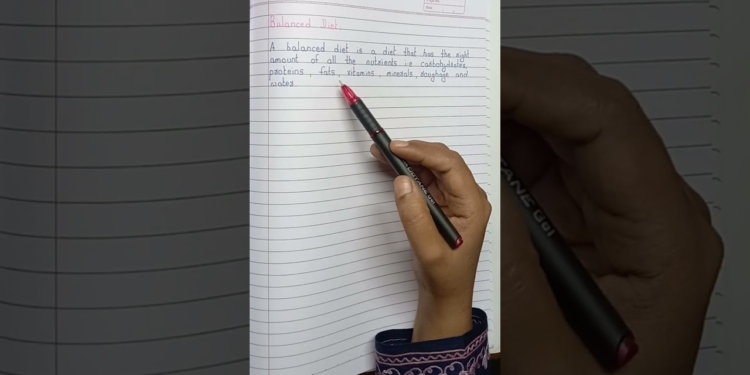 Balanced Diet.
A balanced diet is a diet that has the right
amount of all the nutrients i.e carbohydrates,
proteins, fats, vitamins, minerals, roughage and
water.